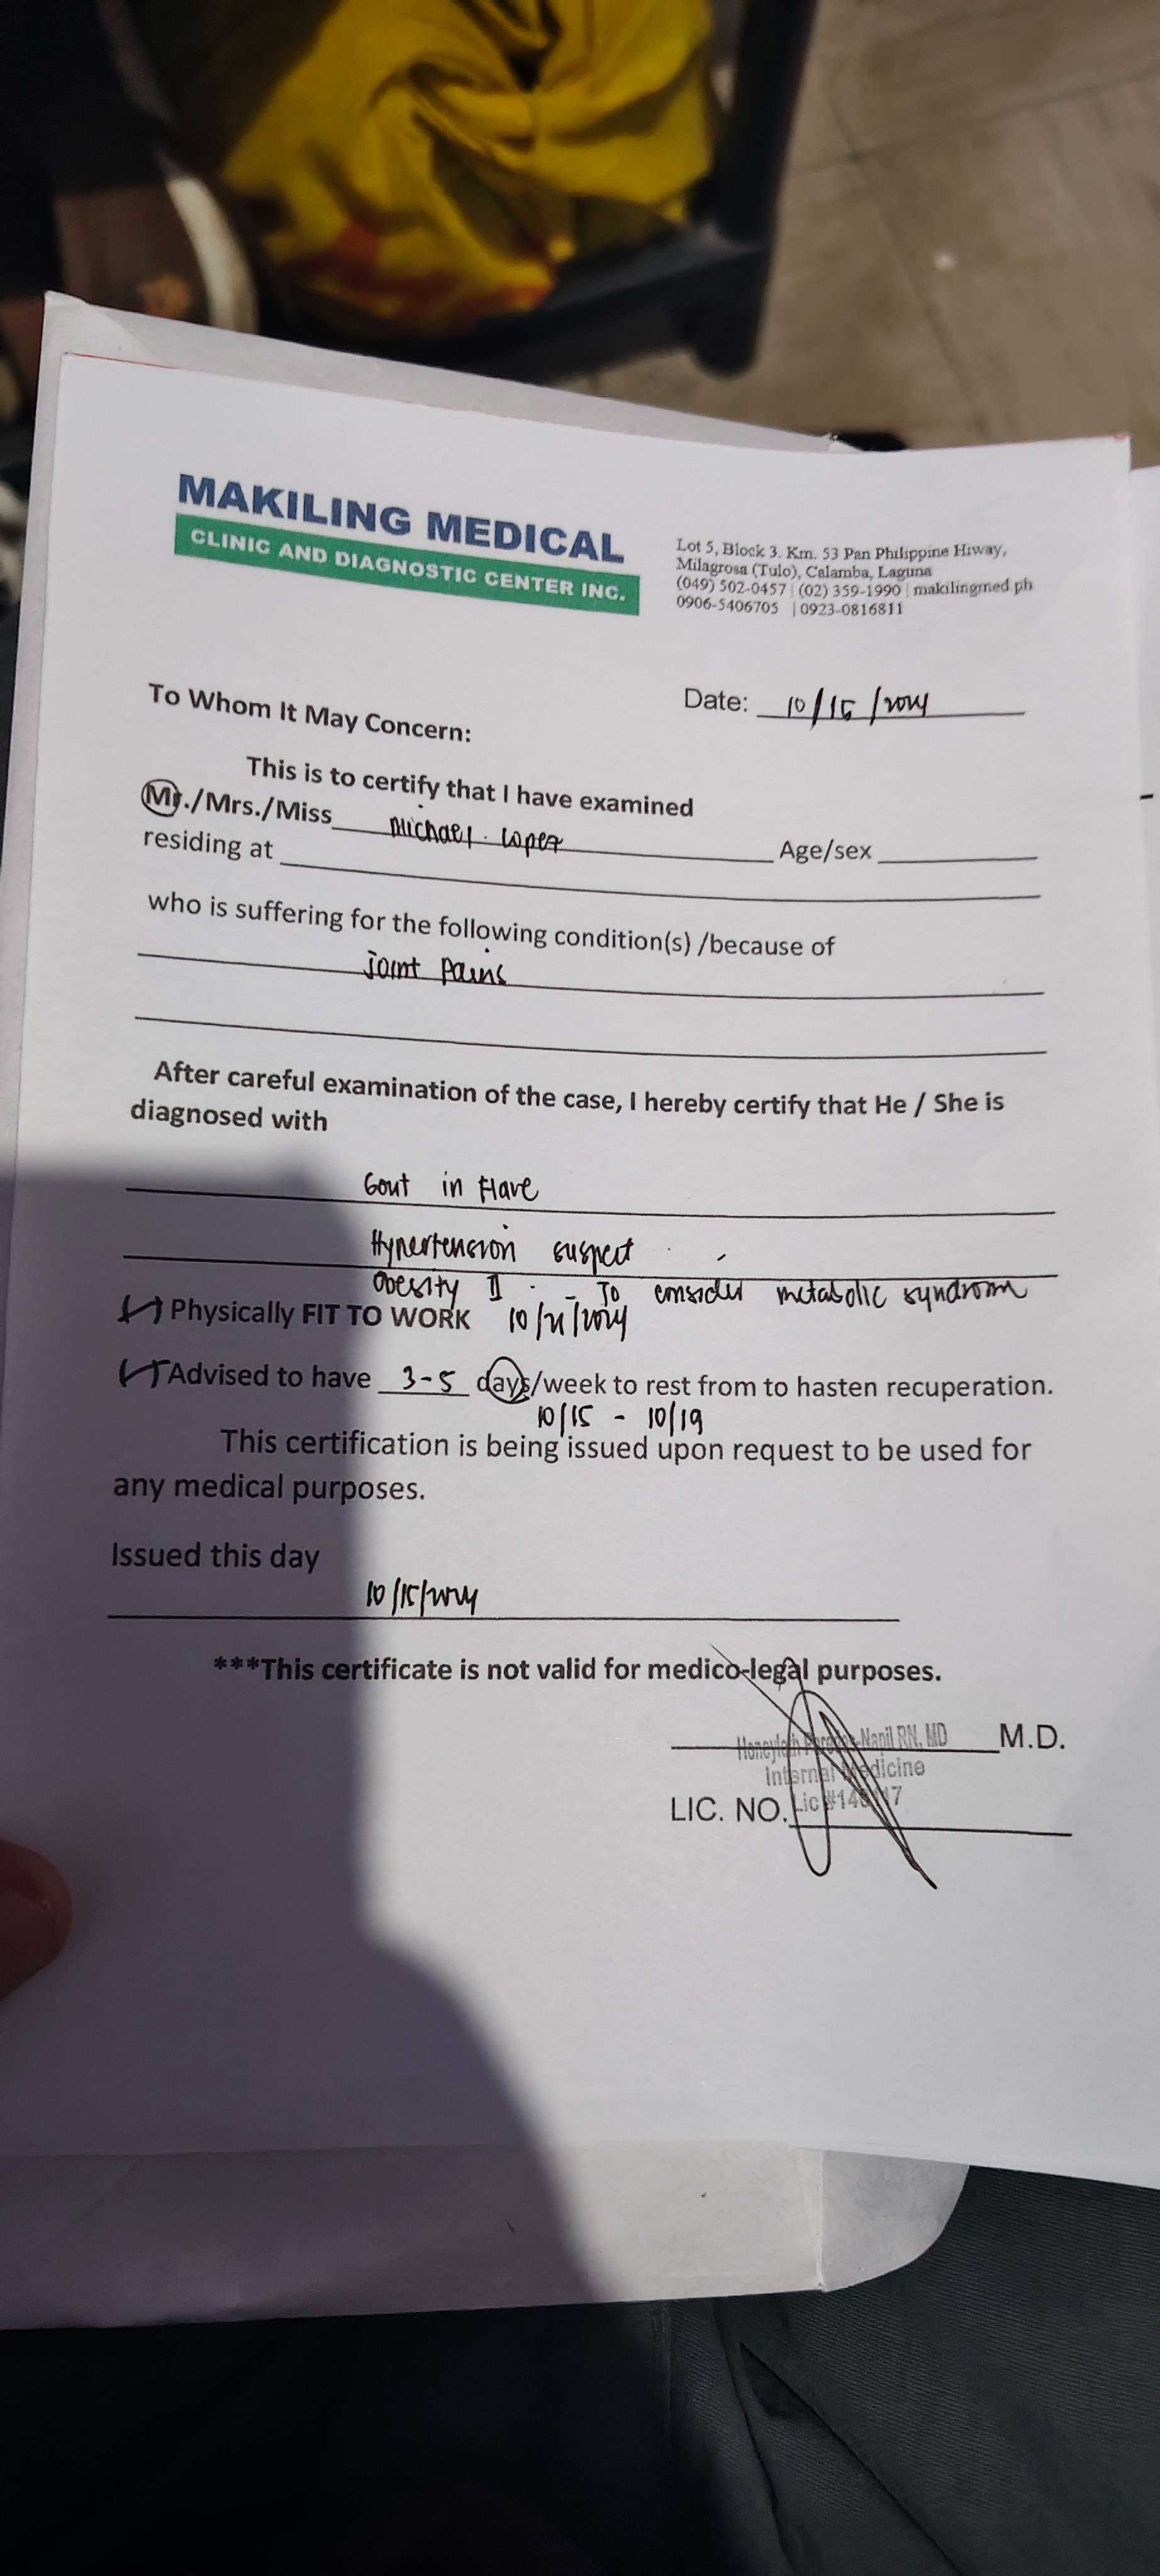 MAKILING MEDICAL
CLINIC AND DIAGNOSTIC CENTER INC.
Lot 5, Block 3. Km. 53 Pan Philippine Hiway,
Milagrosa (Tulo), Calamba, Laguna
(049) 502-0457 | (02) 359-1990 | makilingmed.ph
0906-5406705 | 0923-0816811
Date: 10/15/2024
To Whom It May Concern:
This is to certify that I have examined
Mr./Mrs./Miss Michael Lopez Age/sex
residing at
who is suffering for the following condition(s) /because of
Joint Pains
After careful examination of the case, I hereby certify that He / She is
diagnosed with
Gout in Flare
Hypertension suspect
Obesity II - To consider metabolic syndrome
Physically FIT TO WORK 10/21/2024
Advised to have 3-5 days/week to rest from to hasten recuperation.
10/15 - 10/19
This certification is being issued upon request to be used for
any medical purposes.
Issued this day
10/15/2024
***This certificate is not valid for medico-legal purposes.
-Napil RN, MD M.D.
Internal Medicine
LIC. NO. Lic #